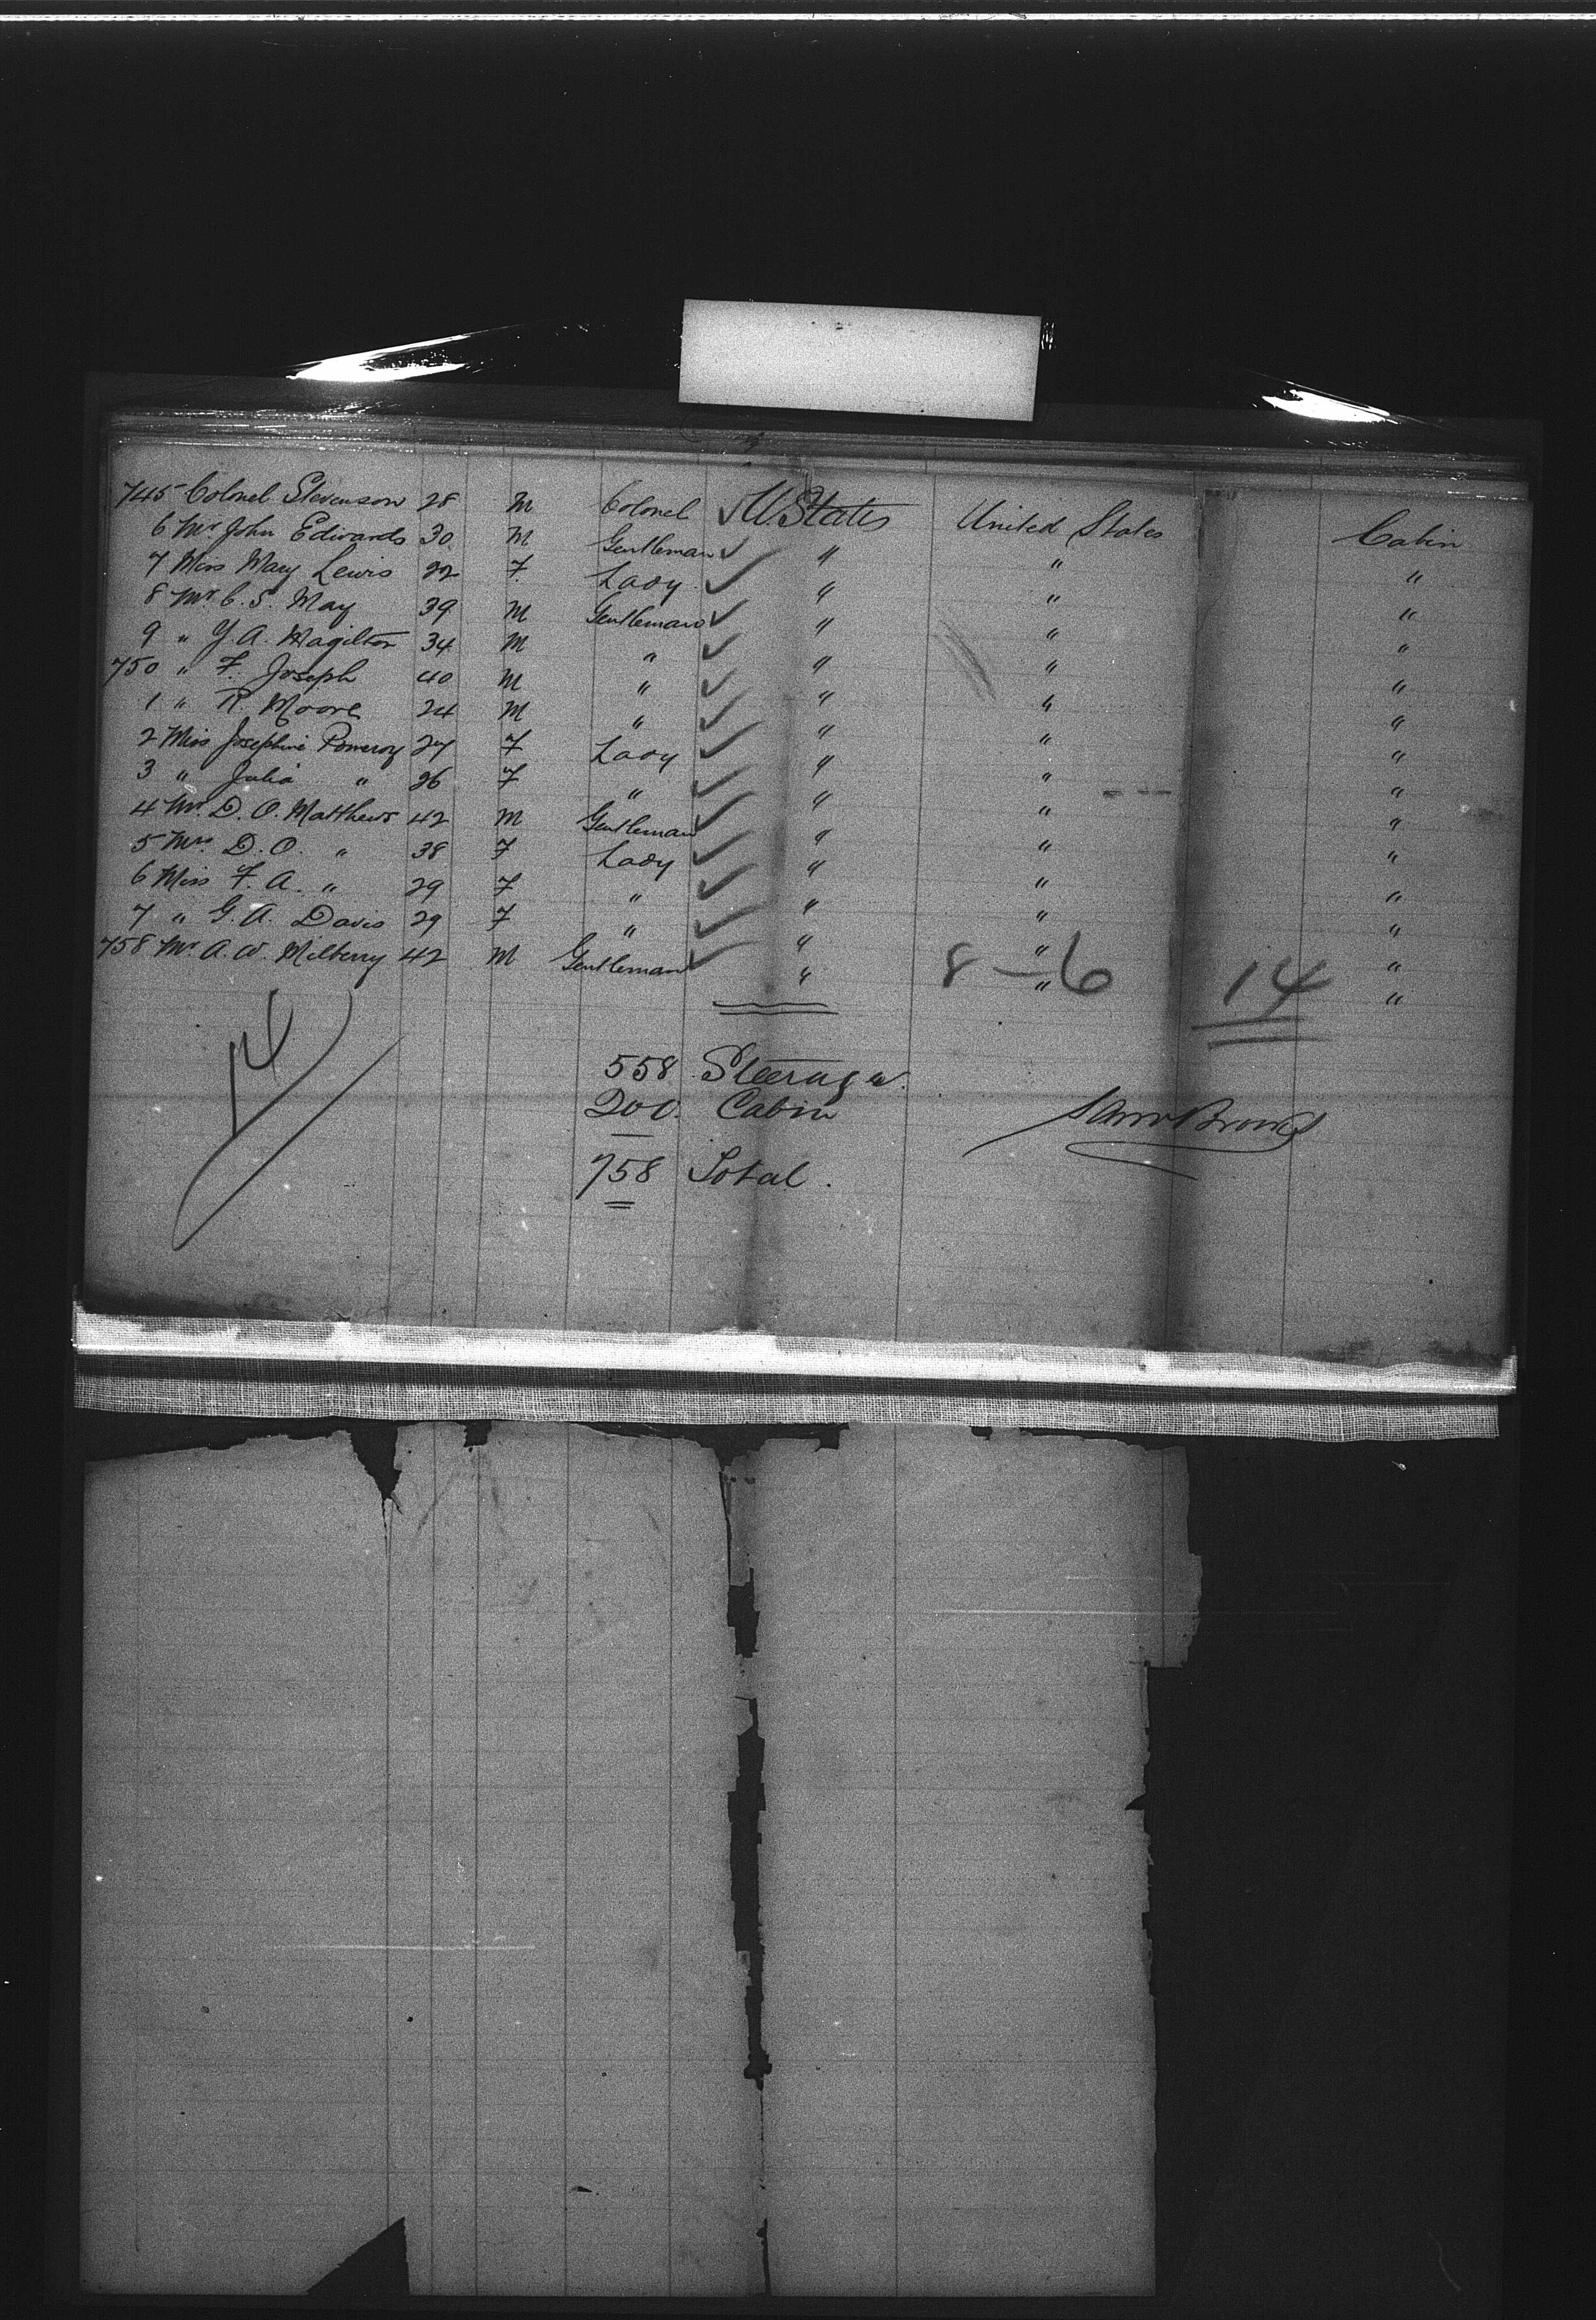 745 Colonel Stevenson 28 M Colonel ✓ U. States United States Cabin
6 Mr John Edwards 30 M Gentleman ✓ " " "
7 Miss Mary Lewis 22 F Lady ✓ " " "
8 Mr C. S. May 39 M Gentleman ✓ " " "
9 " Y. A. Magilton 34 M " ✓ " " "
750 " F. Joseph 40 M " ✓ " " "
1 " R. Moore 24 M " ✓ " " "
2 Miss Josephine Pomeroy 27 F Lady ✓ " " "
3 " Julia " 26 F " ✓ " " "
4 Mr. D. O. Matthews 42 M Gentleman ✓ " " "
5 Mrs. D. O. " 38 F Lady ✓ " " "
6 Miss F. A. " 29 F " ✓ " " "
7 " G. A. Davis 29 F " ✓ " " "
758 Mr. A. W. Milberry 42 M Gentleman ✓ " " "
8 - 6 14
14
558 Steerage.
200. Cabin
758 Total.